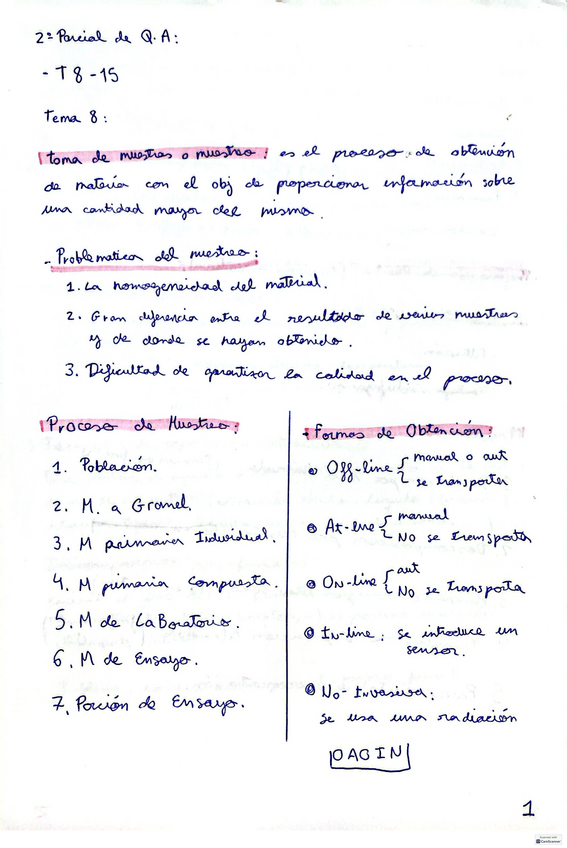 2º Parcial de Q.A:
- T 8 - 15
Tema 8:
toma de muestras o muestreo: es el proceso de obtención
de materia con el obj de proporcionar información sobre
una cantidad mayor del mismo.
- Problematica del muestreo:
1. La homogeneidad del material.
2. Gran diferencia entre el resultado de varias muestras
y de donde se hayan obtenido.
3. Dificultad de garantizar la calidad en el proceso.
Proceso de Muestreo:
1. Población.
2. M. a Granel.
3. M primaria Individual.
4. M primaria compuesta.
5. M de LaBoratorio.
6. M de Ensayo.
7. Porción de Ensayo.
- Formas de Obtención:
Off-line { manual o aut
se transporta
At-line { manual
NO se transporta
ON-line { aut
No se transporta
In-line: se introduce un
sensor.
No-Invasiva:
se usa una radiación
OAOIN
1
CamScanner